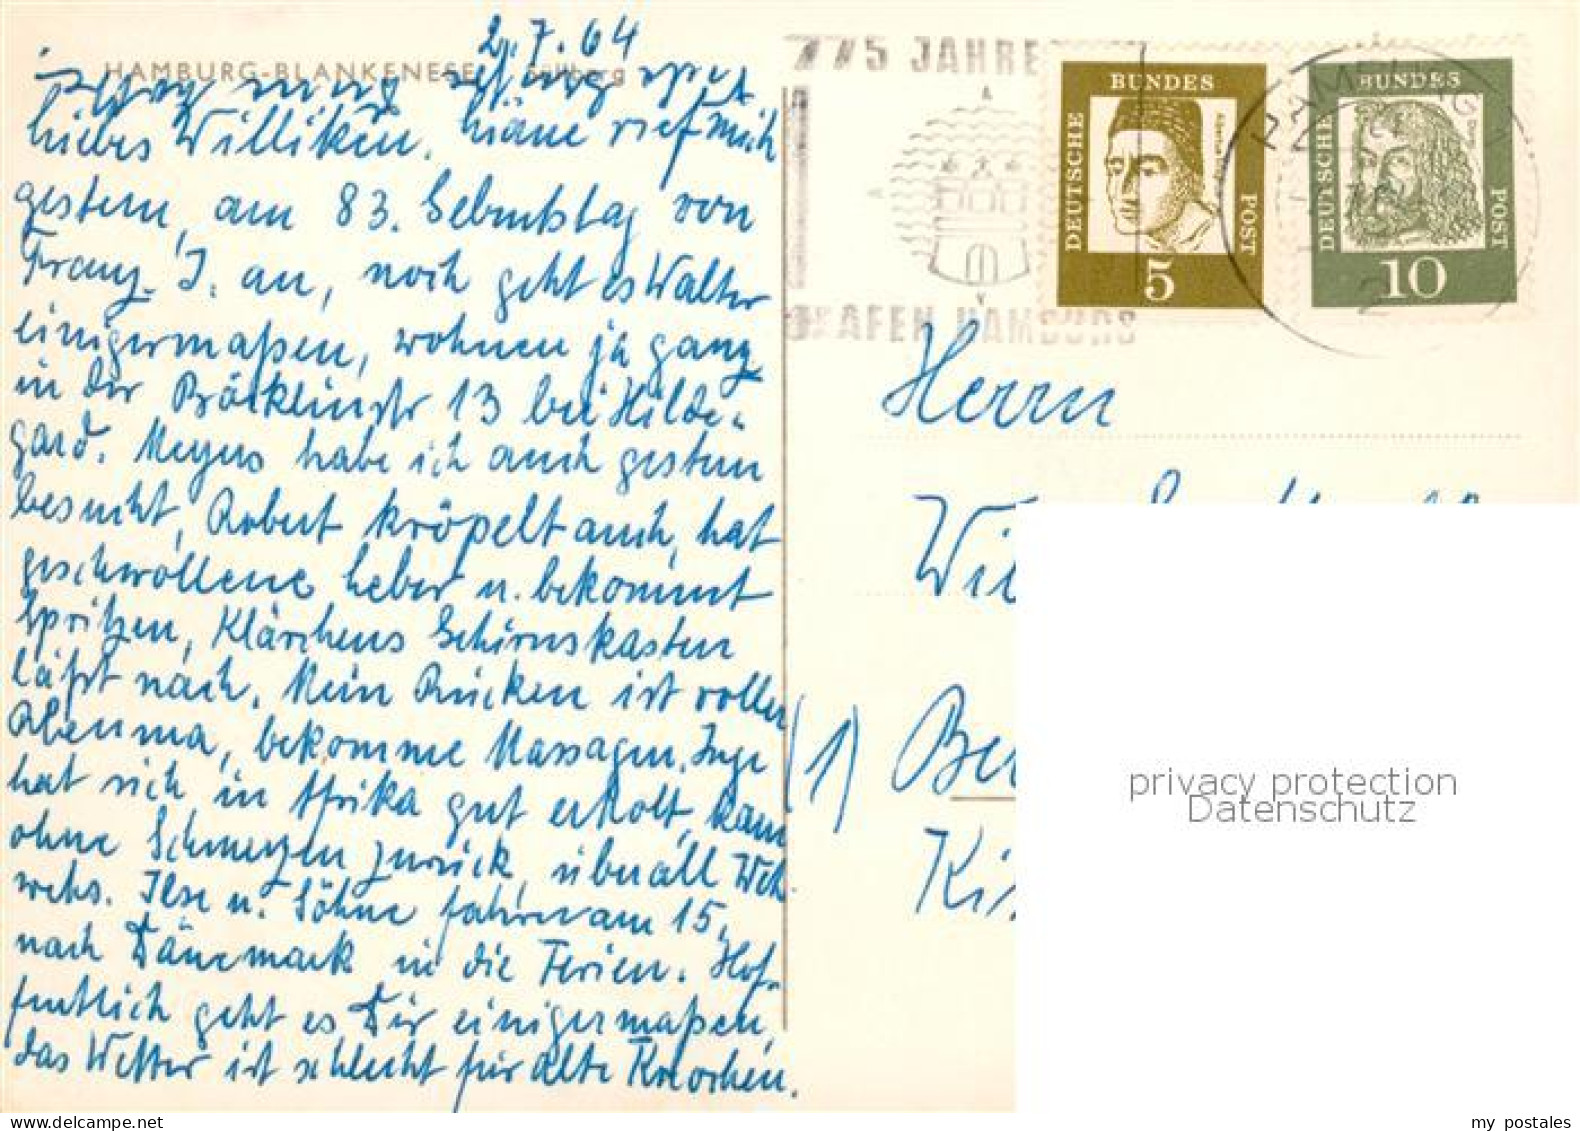 2.7.64
HAMBURG-BLANKENESE Süllberg
liebes Williken, Mäne rief mich
gestern, am 83. Geburtstag von
Franz. J. an, noch geht es Walter
einigermaßen, wohnen ja ganz
in der Böcklinstr 13 bei Hilde-
gard. Meyers habe ich auch gestern
besucht, Robert kröpelt auch, hat
geschwollene Leber u. bekommt
Spritzen, Klärchens Gehirnskasten
läßt nach. Mein Rücken ist voller
Rheuma, bekomme Massagen. Inge
hat sich in Afrika gut erholt, kam
ohne Schmerzen zurück, überall Weh
wehs. Ilse u. Söhne fahren am 15.
nach Dänemark in die Ferien. Hof-
fentlich geht es Dir einigermaßen,
das Wetter ist schlecht für alte Knochen.
775 JAHRE
HAFEN HAMBURG
DEUTSCHE BUNDES POST
5
DEUTSCHE BUNDES POST
Dürer
10
HAMBURG
2
Herrn
Wil
(1) Ber
Ki
privacy protection
Datenschutz
my postales